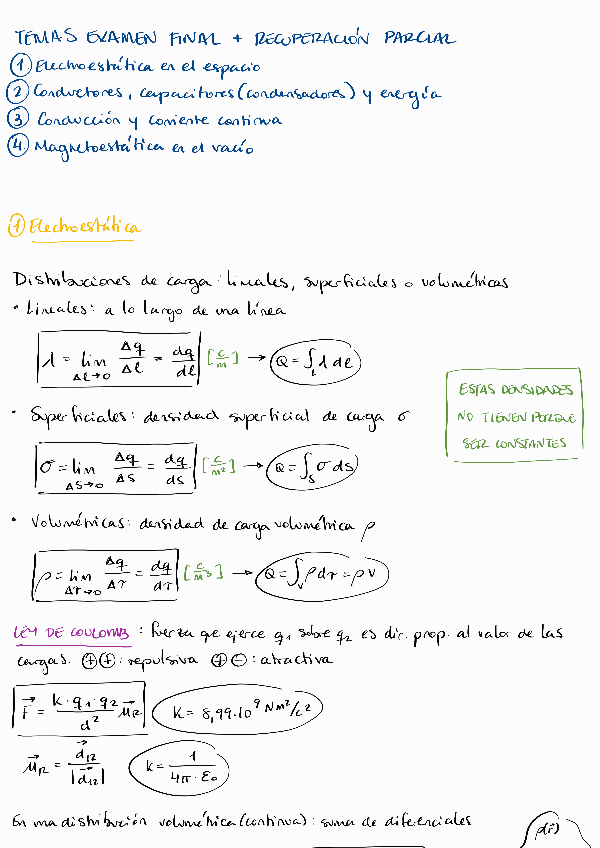 TEMAS EXAMEN FINAL + RECUPERACIÓN PARCIAL
① Electroestática en el espacio
② Conductores, capacitores (condensadores) y energía
③ Conducción y corriente continua
④ Magnetoestática en el vacío
① Electroestática
Distribuciones de carga: lineales, superficiales o volumétricas
• Lineales: a lo largo de una línea
λ = lim Δl→0 Δq/Δl = dq/dl [C/m] → Q = ∫L λ dl
ESTAS DENSIDADES
NO TIENEN PORQUE
SER CONSTANTES
• Superficiales: densidad superficial de carga σ
σ = lim ΔS→0 Δq/ΔS = dq/ds [C/m²] → Q = ∫S σ ds
• Volumétricas: densidad de carga volumétrica ρ
ρ = lim Δτ→0 Δq/Δτ = dq/dτ [C/m³] → Q = ∫V ρ dτ = ρ V
LEY DE COULOMB: fuerza que ejerce q1 sobre q2 es dir. prop. al valor de las
cargas. ⊕⊕: repulsiva ⊕⊖: atractiva
F⃗ = k·q1·q2/d² u⃗12 K = 8,99·10⁹ Nm²/C²
u⃗12 = d⃗12/|d⃗12| k = 1/4π·ε0
En una distribución volumétrica (continua): suma de diferenciales